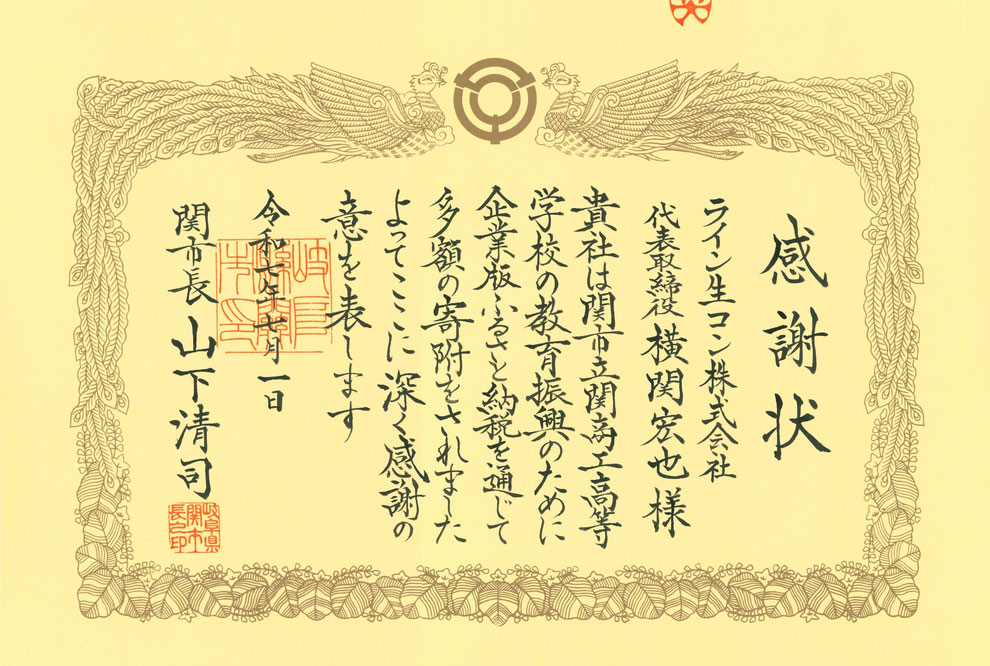 感謝状
ライン生コン株式会社
代表取締役 横関宏也様
貴社は関市立関商工高等
学校の教育振興のために
企業版ふるさと納税を通じて
多額の寄附をされました
よってここに深く感謝の
意を表します
令和七年七月一日
関市長 山下清司
岐阜県
関市
長之印